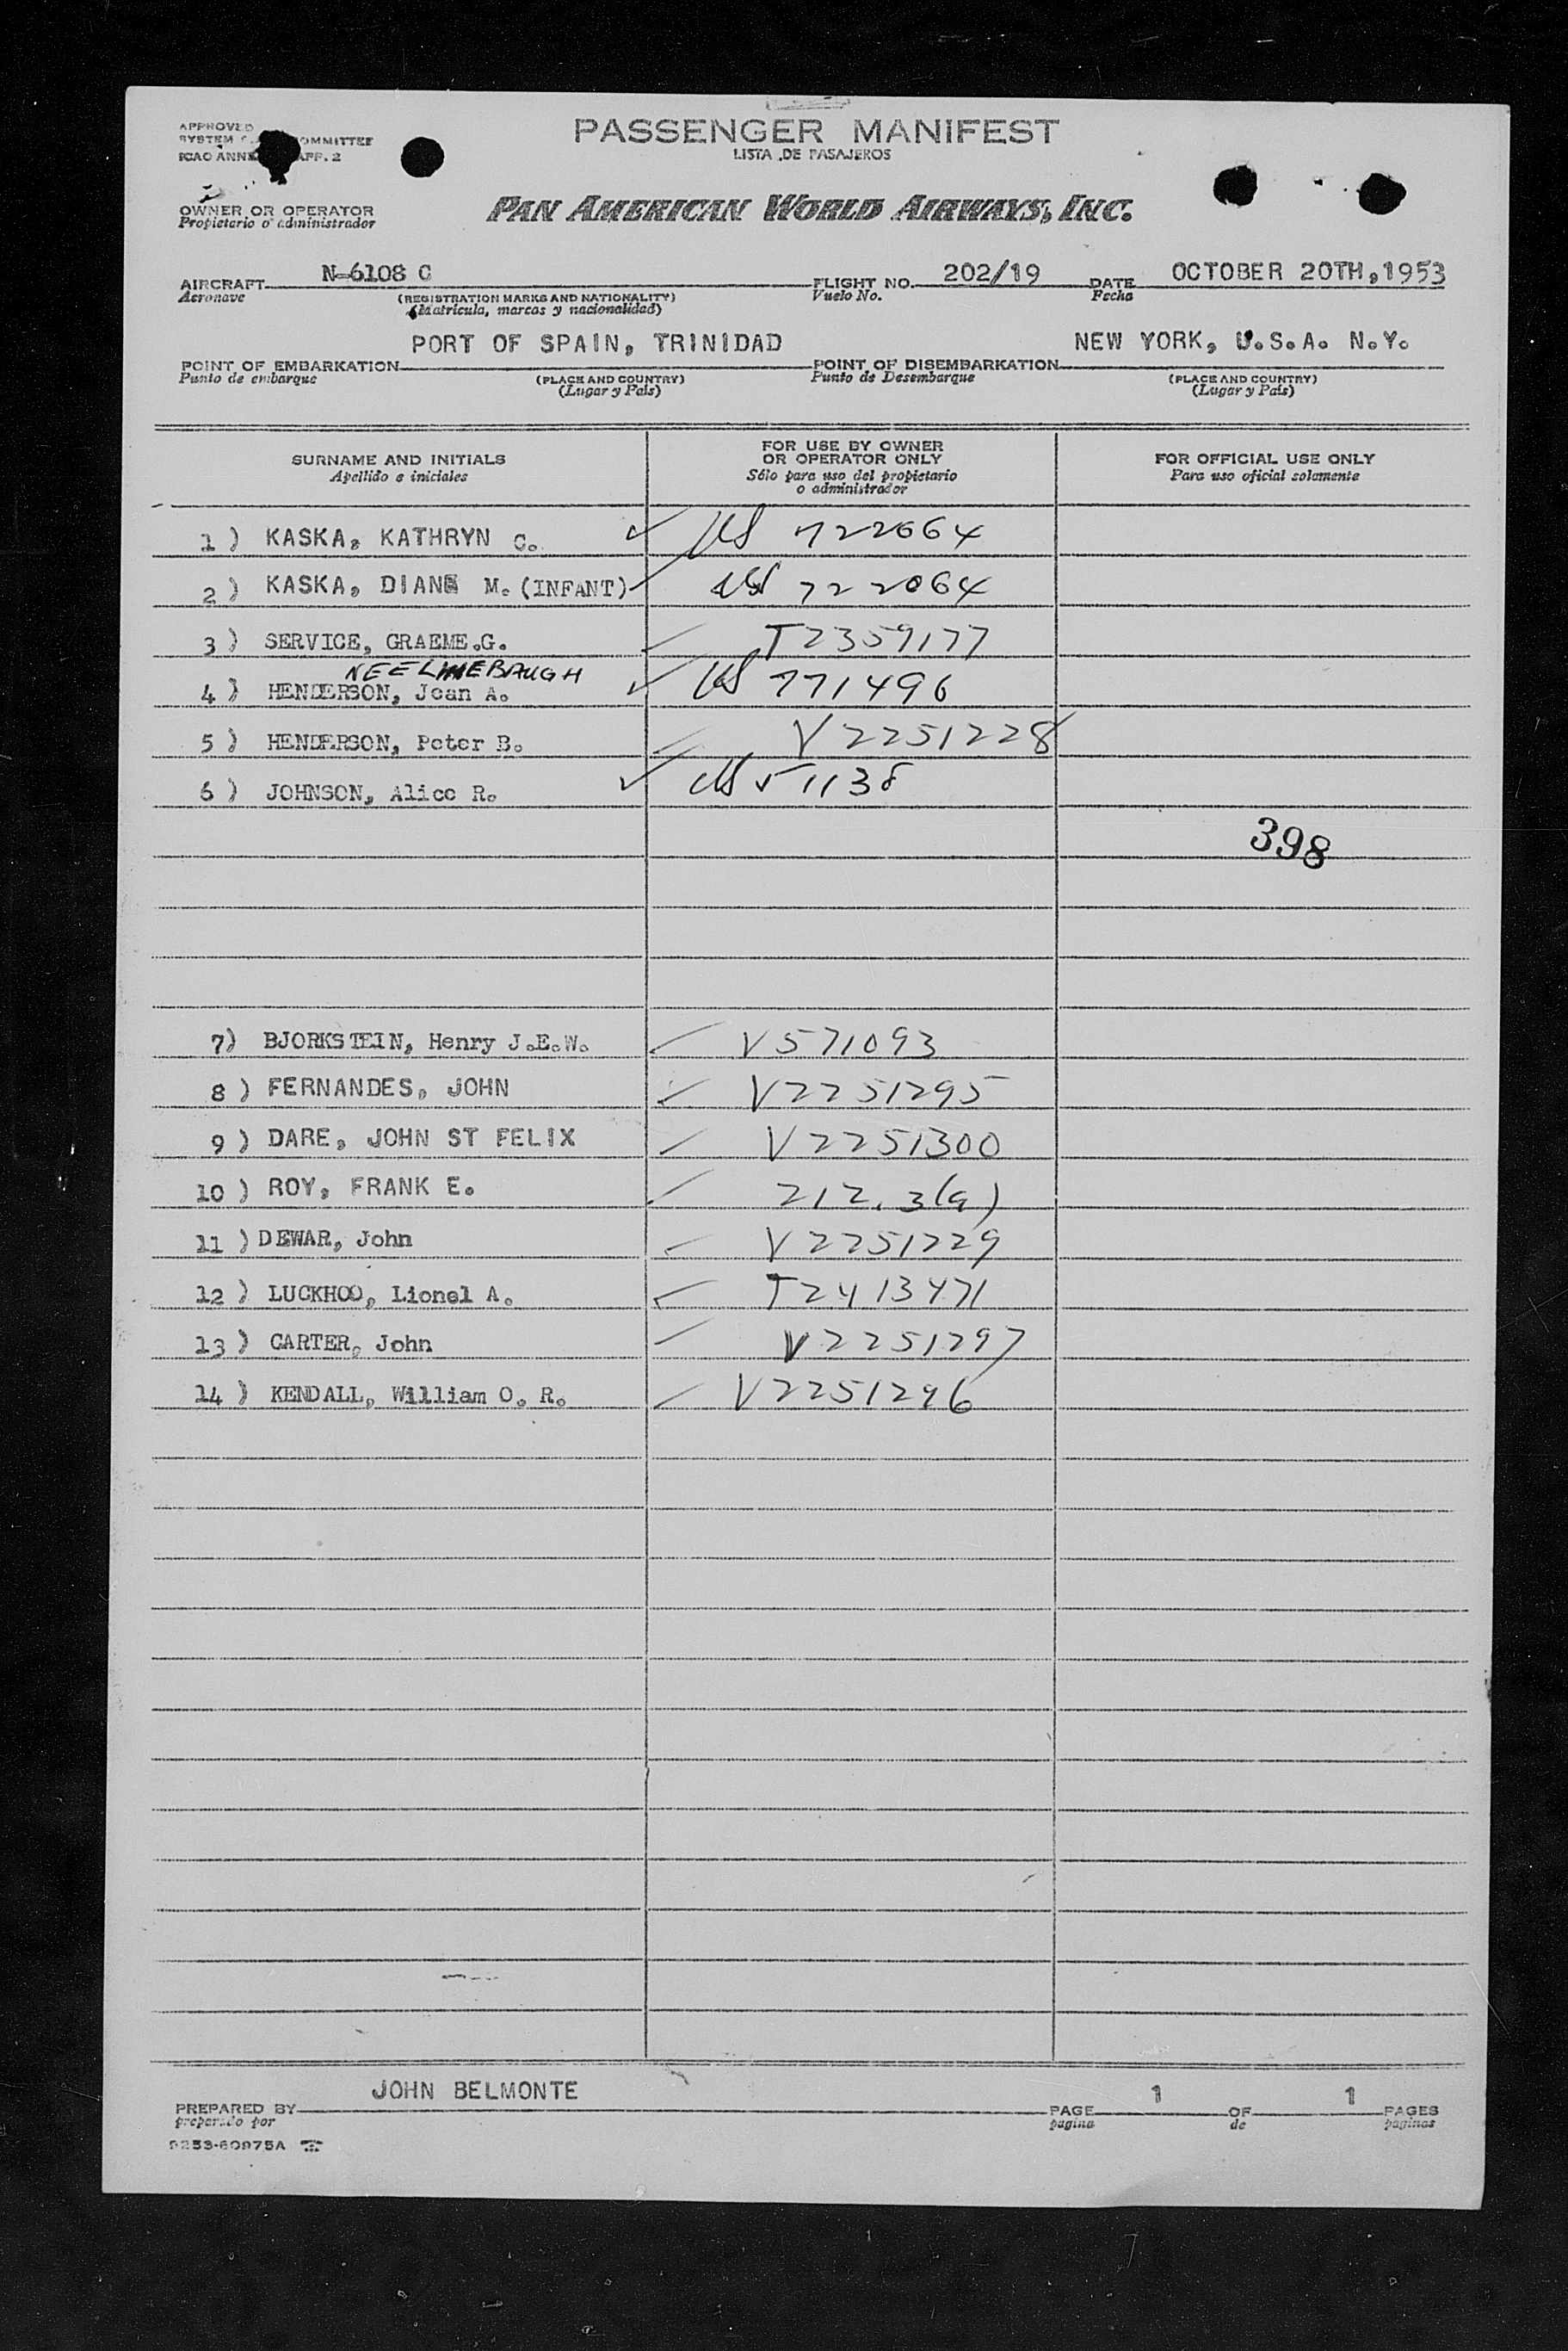 APPROVED
SYSTEM COMMITTEE
ICAO ANNE APP. 2
PASSENGER MANIFEST
LISTA DE PASAJEROS
OWNER OR OPERATOR
Propietario o administrador
PAN AMERICAN WORLD AIRWAYS, INC.
AIRCRAFT N-6108 C FLIGHT NO. 202/19 DATE OCTOBER 20TH,1953
Aeronave (REGISTRATION MARKS AND NATIONALITY) Vuelo No. Fecha
(Matricula, marcas y nacionalidad)
POINT OF EMBARKATION PORT OF SPAIN, TRINIDAD POINT OF DISEMBARKATION NEW YORK, U.S.A. N.Y.
Punto de embarque (PLACE AND COUNTRY) Punto de Desembarque (PLACE AND COUNTRY)
(Lugar y País) (Lugar y País)
SURNAME AND INITIALS FOR USE BY OWNER OR OPERATOR ONLY FOR OFFICIAL USE ONLY
Apellido e iniciales Sólo para uso del propietario o administrador Para uso oficial solamente
1 ) KASKA, KATHRYN C. ✓ US 722064
2 ) KASKA, DIANE M. (INFANT) US 722064
3 ) SERVICE, GRAEME.G. T2359177
NEELMEBAUGH
4 ) HENDERSON, Jean A. ✓ US 771496
5 ) HENDERSON, Peter B. V2251228
6 ) JOHNSON, Alice R. ✓ US 51138
398
7) BJORKSTEIN, Henry J.E.W. V571093
8 ) FERNANDES, JOHN V2251295
9 ) DARE, JOHN ST FELIX V2251300
10 ) ROY, FRANK E. 212.3(a)
11 ) DEWAR, John V2251229
12 ) LUCKHOO, Lionel A. T2413471
13 ) CARTER, John V2251297
14 ) KENDALL, William O. R. V2251296
PREPARED BY JOHN BELMONTE PAGE 1 OF 1 PAGES
preparado por pagina de paginas
9253-60975A